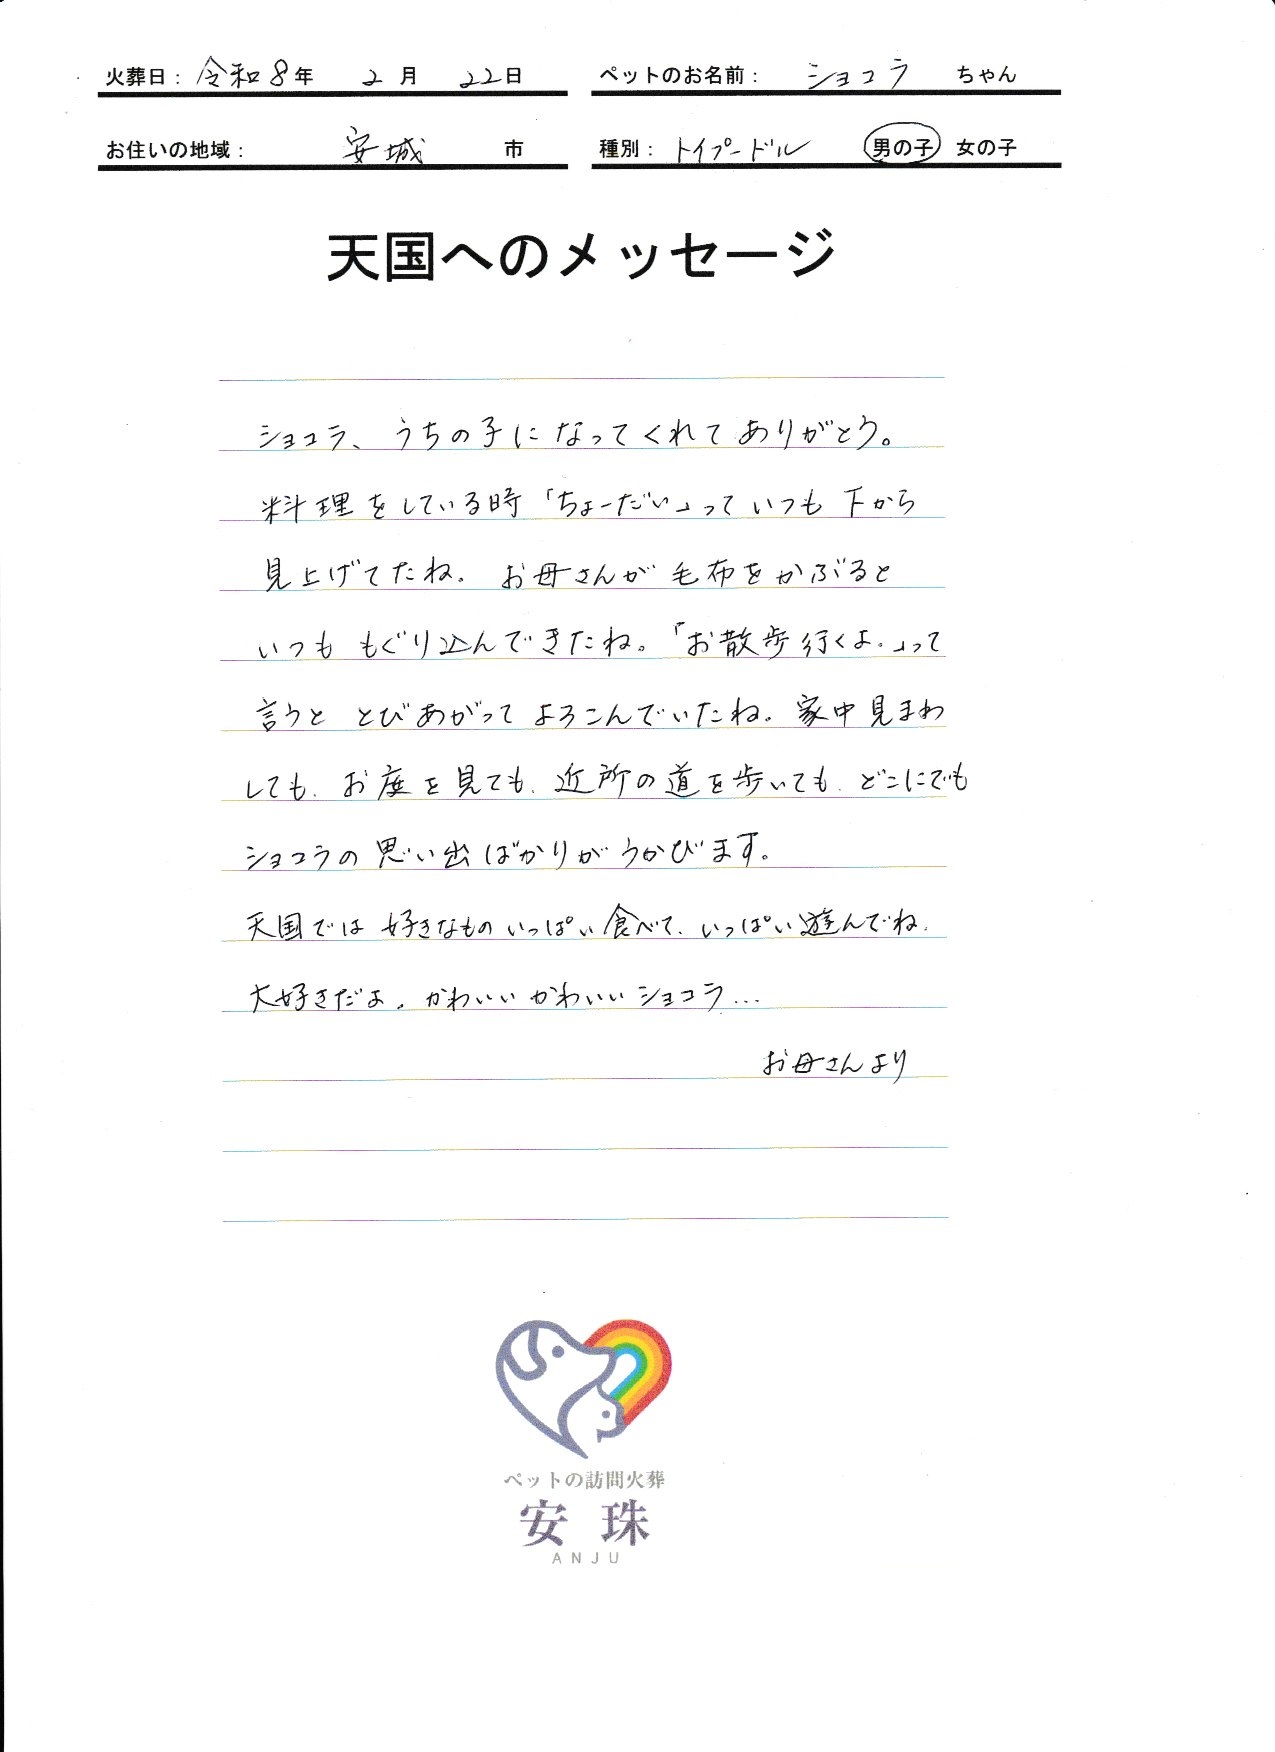 火葬日： 令和8年 2月 22日
ペットのお名前： ショコラ ちゃん
お住いの地域： 安城 市
種別： トイプードル 男の子 女の子
天国へのメッセージ
ショコラ、うちの子になってくれてありがとう。
料理をしている時「ちょーだい」っていつも下から
見上げてたね。お母さんが毛布をかぶると
いつももぐり込んできたね。「お散歩行くよ。」って
言うととびあがってよろこんでいたね。家中見まわ
しても、お庭を見ても、近所の道を歩いても、どこにでも
ショコラの思い出ばかりがうかびます。
天国では好きなものいっぱい食べて、いっぱい遊んでね。
大好きだよ。かわいいかわいいショコラ…
お母さんより
ペットの訪問火葬
安珠
ANJU